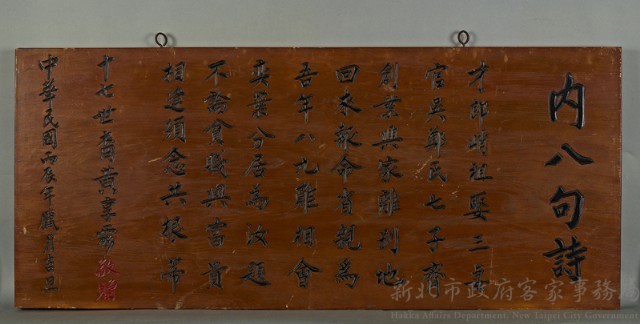 內八句詩
才郎峭祖娶三妻
官吳鄭氏七子齊
創業興家離別地
回來報命省親為
吾年八九難相會
棄業分居為汝題
不論貧賤與富貴
相逢須念共根蒂
十七世裔黃享雲敬贈
中華民國丙辰年月吉旦
新北市政府客家事務局
Hakka Affairs Department, New Taipei City Government